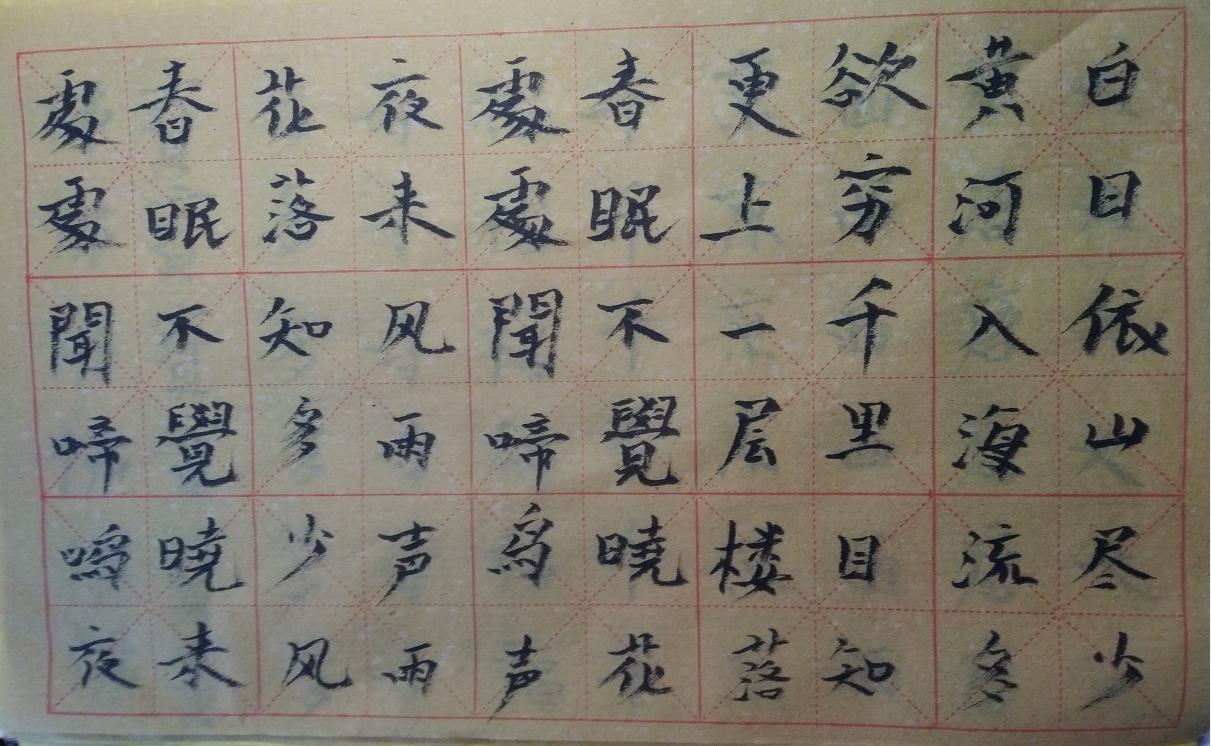 白日依山尽
黄河入海流
欲穷千里目
更上一层楼
春眠不覺曉
處處聞啼鳥
夜来风雨声
花落知多少
春眠不覺曉
處處聞啼
夜来风雨声花落知多少